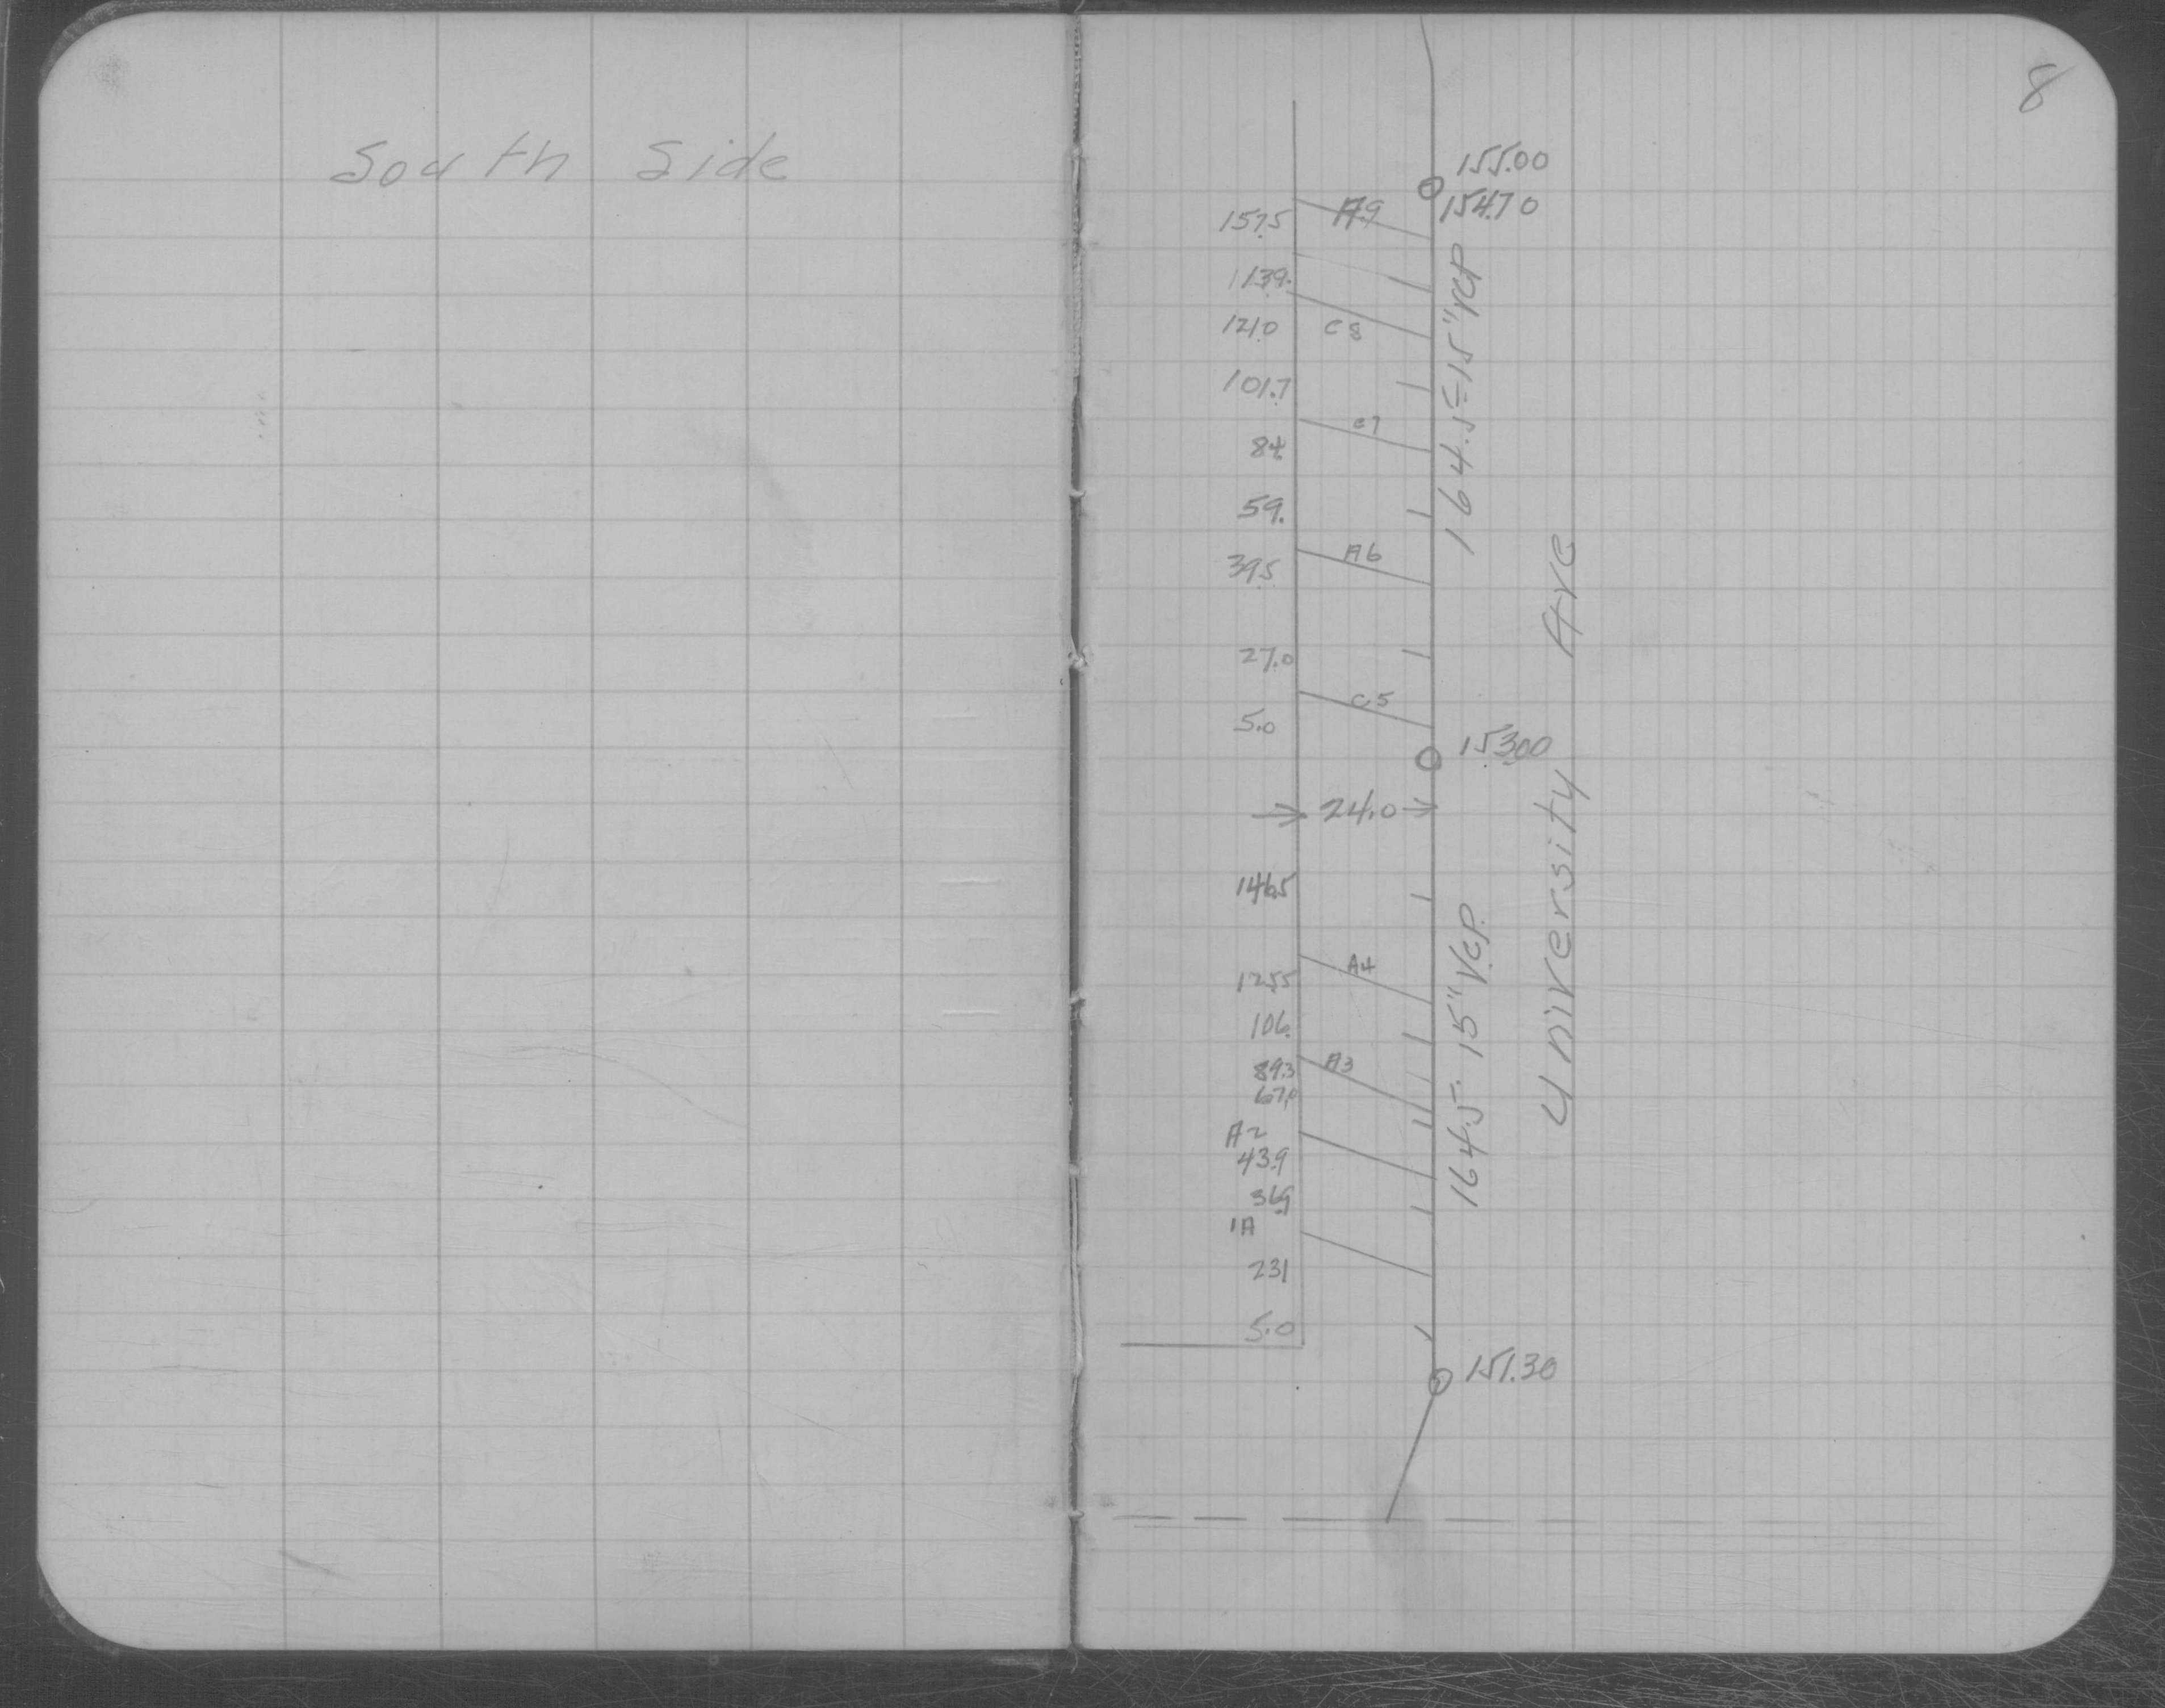 South Side
8
155.00
154.70
157.5 A9
139.
121.0 C8
101.7
C7
84.
59.
A6
39.5
27.0
C5
5.0
153.00
24.0
146.5
A4
125.5
106.
A3
89.3
67.0
A2
43.9
36.9
1A
23.1
5.0
151.30
164.5 - 15" VCP
164.5 - 15" VCP.
University Ave